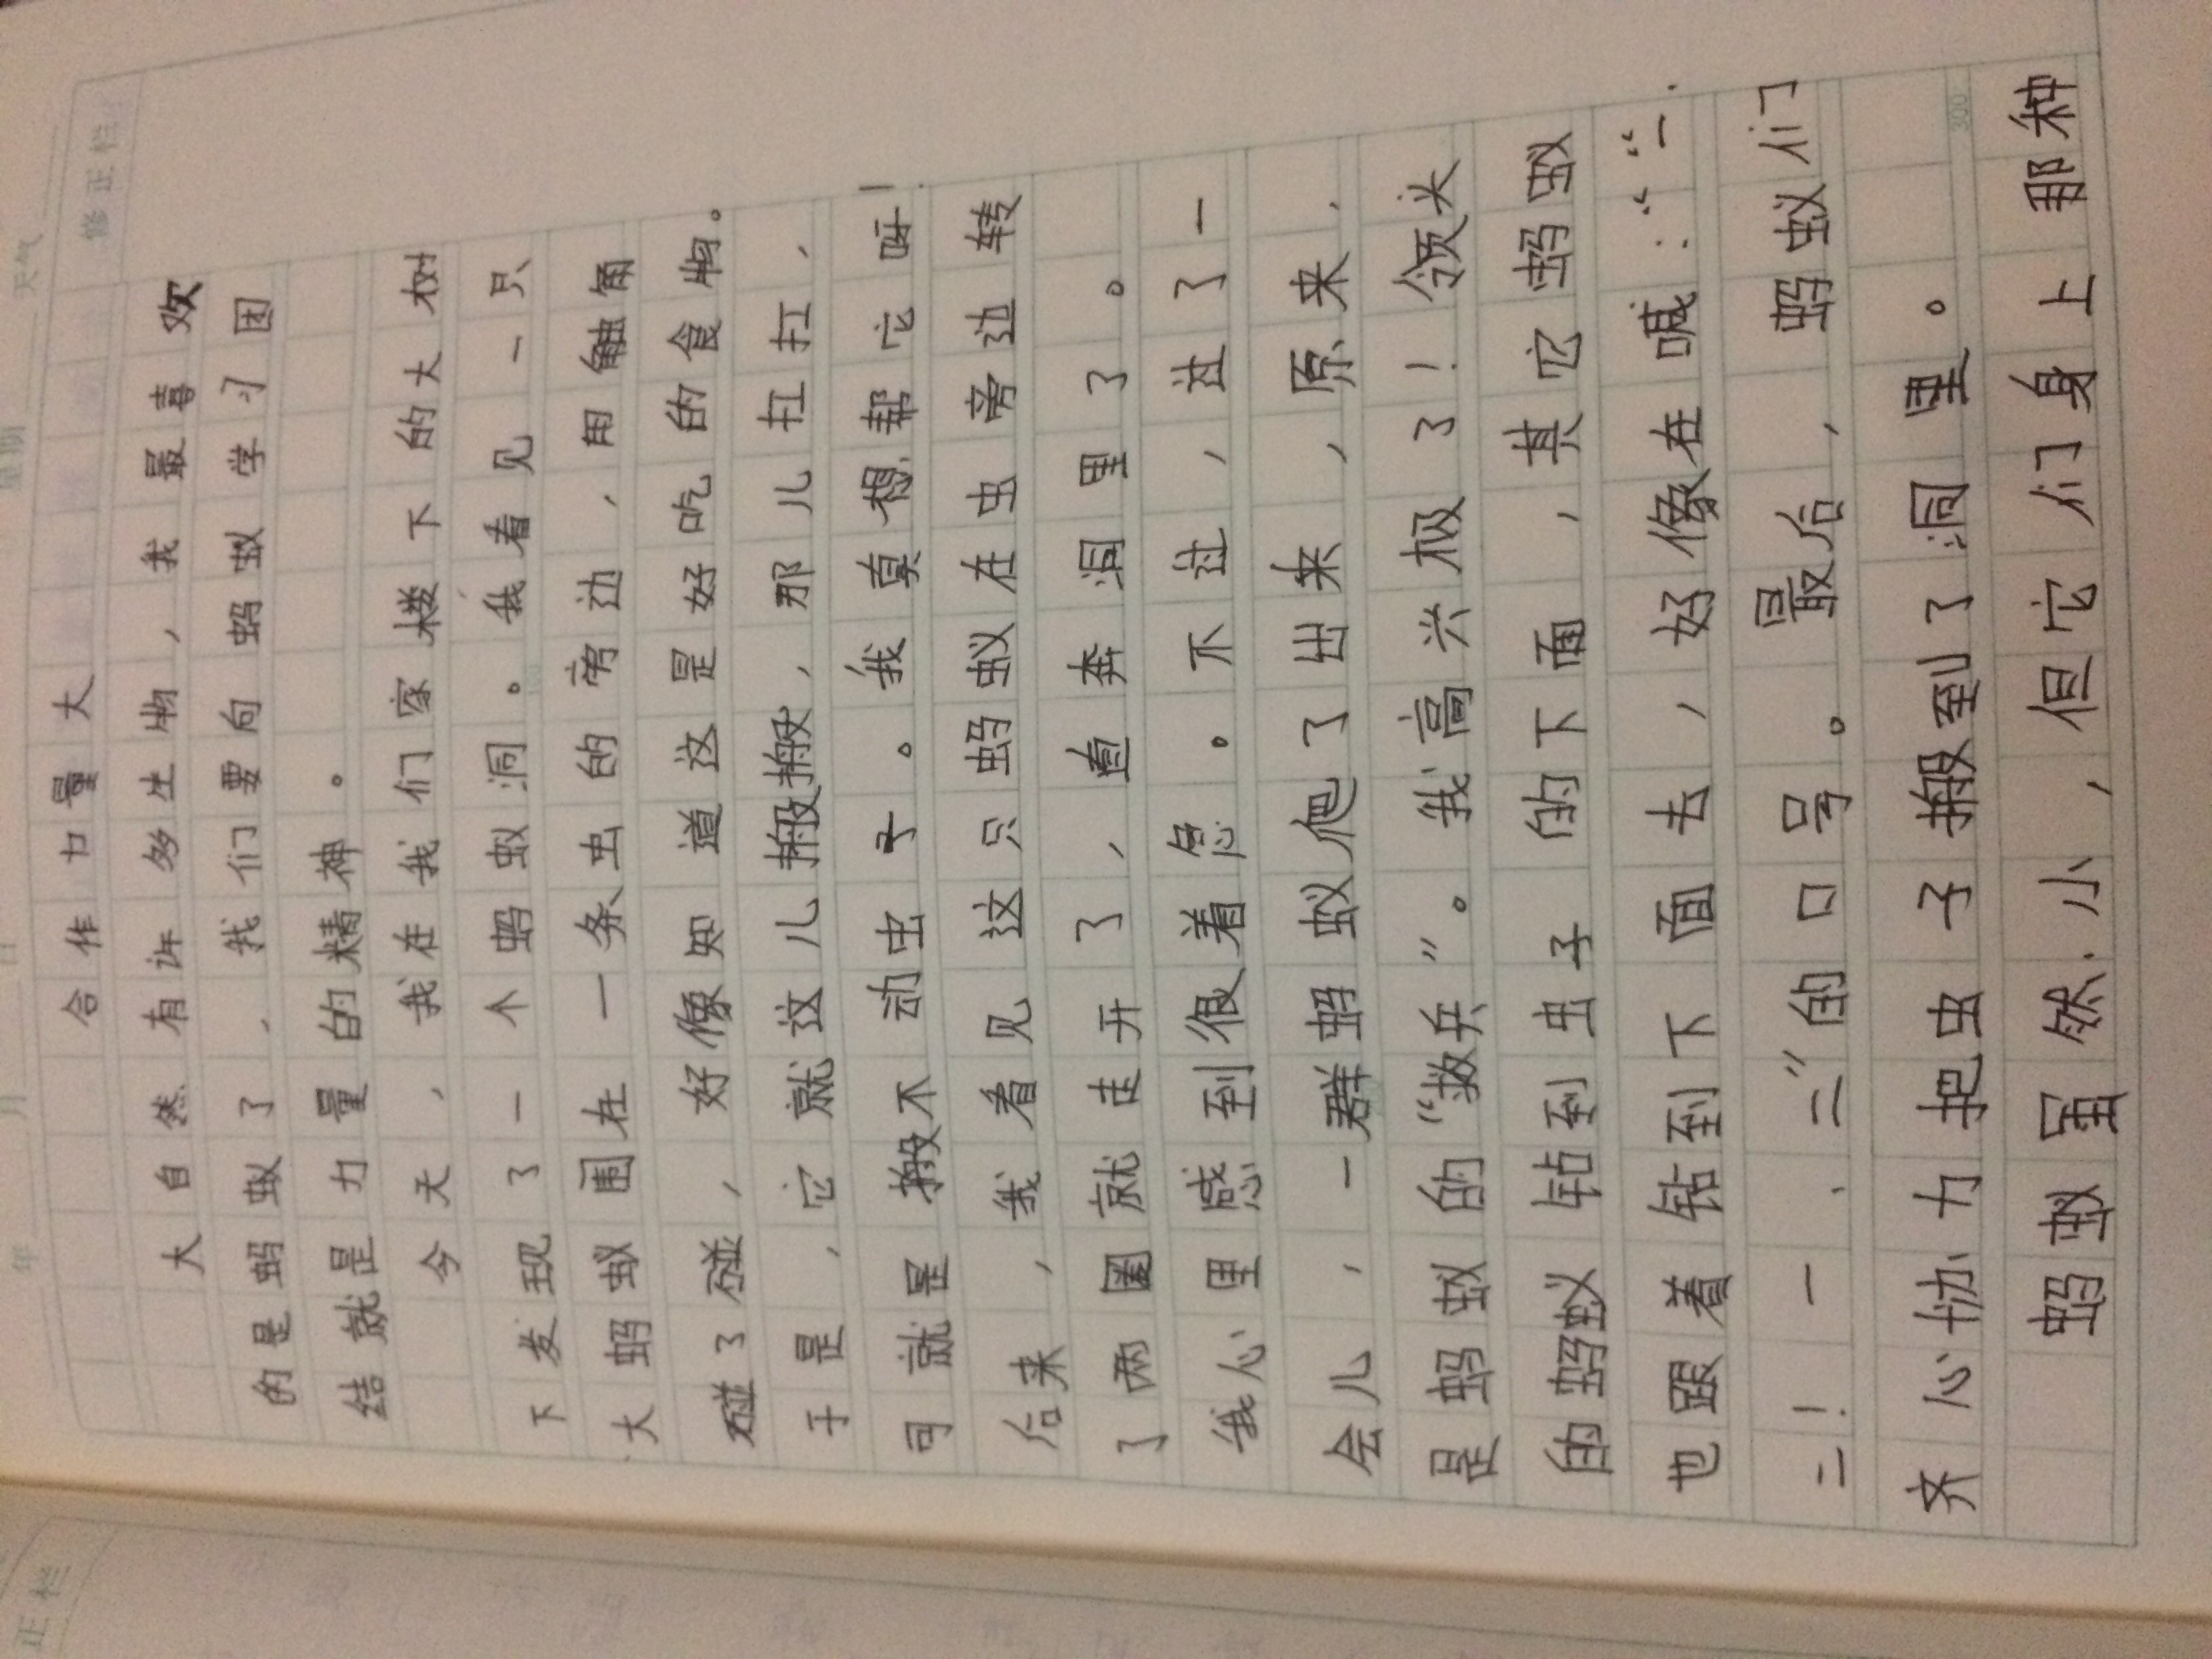 年 月 日 星期 天气
修正栏
合作力量大
大自然有许多生物，我最喜欢
的是蚂蚁了，我们要向蚂蚁学习团
结就是力量的精神。
今天，我在我们家楼下的大树
下发现了一个蚂蚁洞。我看见一只
大蚂蚁围在一条虫的旁边，用触角
碰了碰，好像知道这是好吃的食物。
于是，它就这儿搬搬，那儿扛扛，
可就是搬不动虫子。我真想帮它呀！
后来，我看见这只蚂蚁在虫旁边转
了两圈就走开了，直奔洞里了。
我心里感到很着急。不过，过了一
会儿，一群蚂蚁爬了出来，原来，
是蚂蚁的“救兵”。我高兴极了！领头
的蚂蚁钻到虫子的下面，其它蚂蚁
也跟着钻到下面去，好像在喊：“一、
二！一、二”的口号。最后，蚂蚁们
齐心协力把虫子搬到了洞里。
300
蚂蚁虽然小，但它们身上那种
正栏